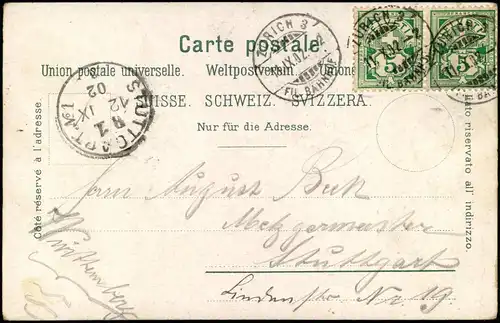 Carte postale.
Union postale universelle. Weltpostverein. Unione
SUISSE. SCHWEIZ. SVIZZERA.
Nur für die Adresse.
Côté réservé à l'adresse.
Lato riservato all' indirizzo.
ZÜRICH 3
11.IX.02.
FIL. BAHNHOF
ZÜRICH 3
5
5
STUTTGART. No 1
12 IX
02
Herrn August Beck
Metzgermeister
Stuttgart
Lindenstr No 19
Württemberg